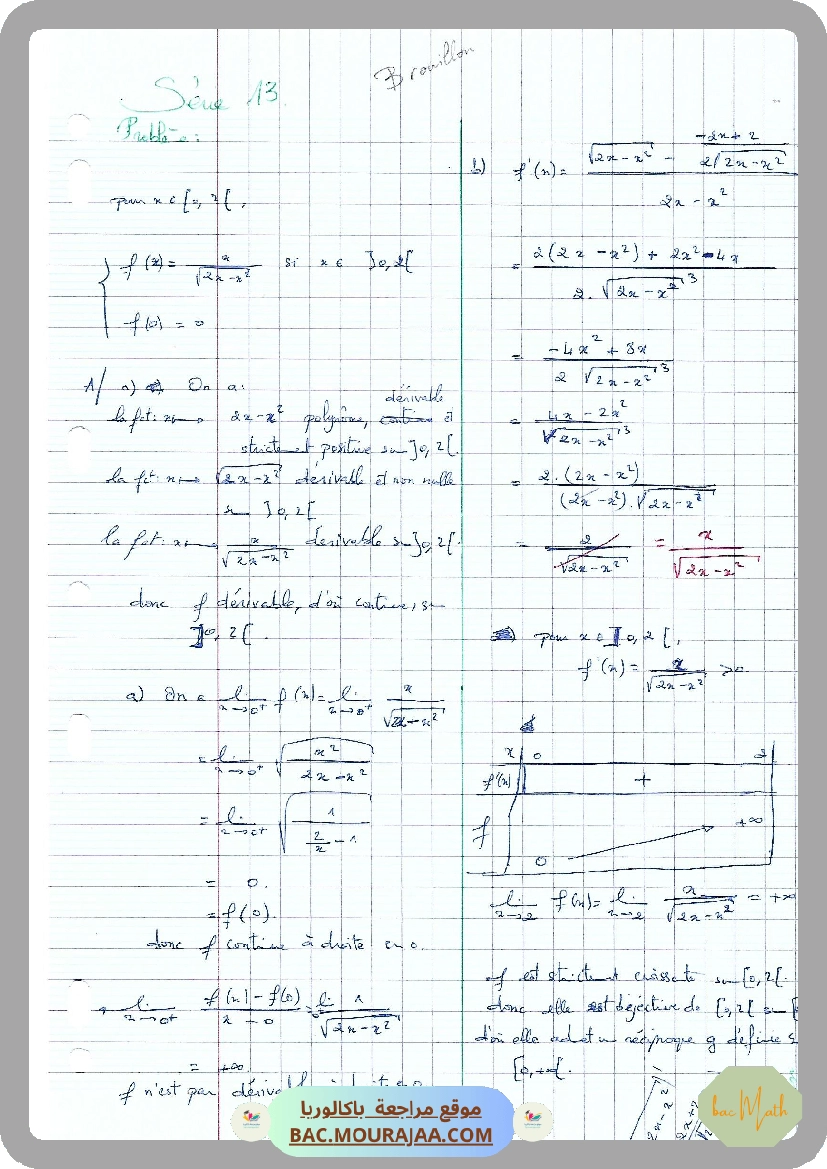 Brouillon
Série 13.
Problème :
pour x ∈ [0, 2[ ,
f(x) = x / √(2x-x²) si x ∈ ]0,2[
f(0) = 0
A/ a) On a :
la fct : x ↦ 2x-x² polynôme, dérivable et
strictement positive sur ]0,2[.
la fct : x ↦ √(2x-x²) dérivable et non nulle
sur ]0,2[
la fct : x ↦ x / √(2x-x²) dérivable sur ]0,2[.
donc f dérivable, d'où continue, sur
]0, 2[.
a) On a lim x→0⁺ f(x) = lim x→0⁺ x / √(2x-x²)
= lim x→0⁺ √(x² / (2x-x²))
= lim x→0⁺ √(1 / (2/x - 1))
= 0.
= f(0).
donc f continue à droite en 0.
lim x→0⁺ (f(x) - f(0)) / (x - 0) = lim 1 / √(2x-x²)
= +∞
f n'est pas
b) f'(x) = (√(2x-x²) - (-2x+2) / (2√(2x-x²))) / (2x-x²)
= (2(2x-x²) + 2x²-4x) / (2.√(2x-x²)³)
= (-4x²+8x) / (2√(2x-x²)³)
= (4x-2x²) / √(2x-x²)³
= 2.(2x-x²) / ((2x-x²).√(2x-x²))
= 2 / √(2x-x²) = x / √(2x-x²)
pour x ∈ ]0,2[,
f'(x) = x / √(2x-x²) >0
x 0 2
f'(x) +
f 0 +∞
lim x→2 f(x) = lim x→2 x / √(2x-x²) = +∞
f est strictement croissante sur [0,2[.
donc elle est bijective de [0,2[ sur [
d'où elle admet un réciproque g définie s
[0,+∞[.
موقع مراجعة باكالوريا
BAC.MOURAJAA.COM
bac Math